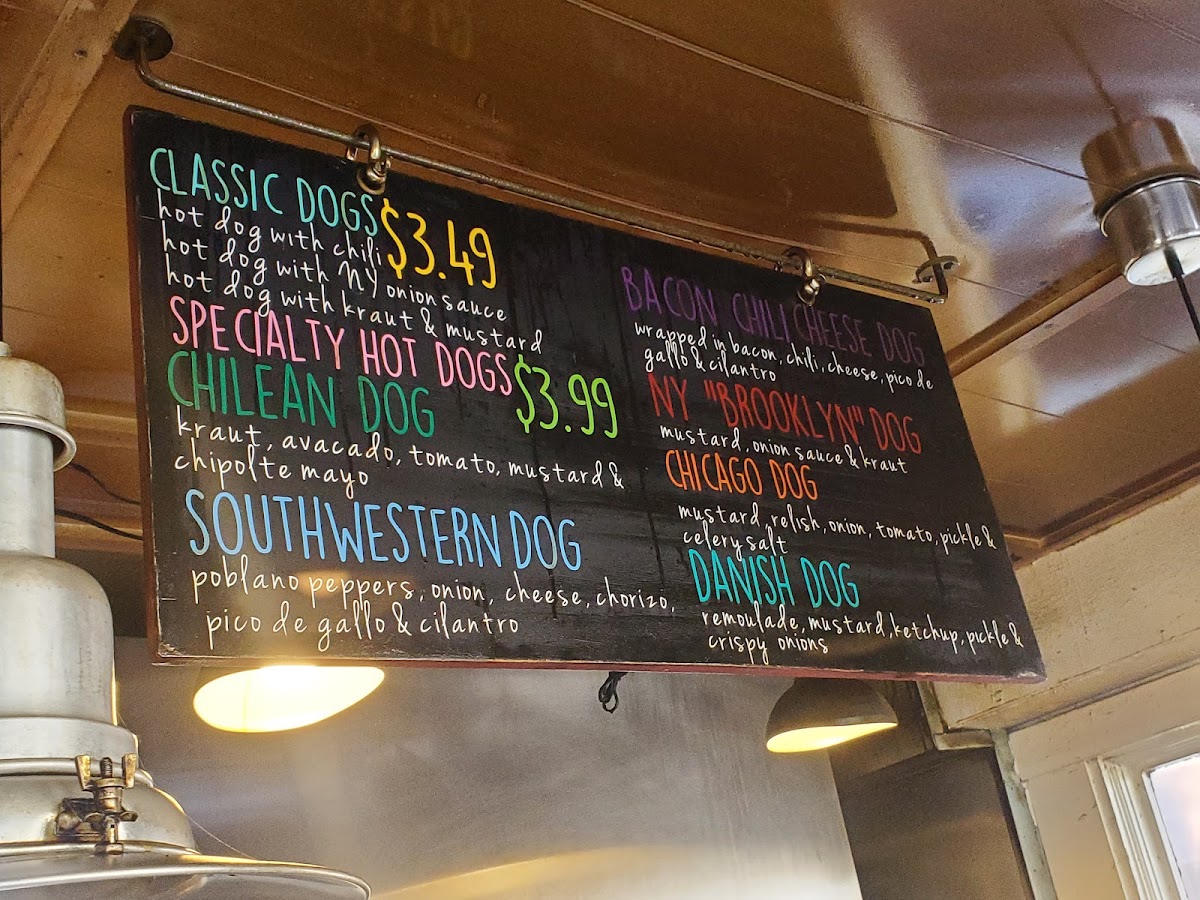 CLASSIC DOGS $3.49
hot dog with chili
hot dog with NY onion sauce
hot dog with kraut & mustard
SPECIALTY HOT DOGS $3.99
CHILEAN DOG
kraut, avacado, tomato, mustard &
chipolte mayo
SOUTHWESTERN DOG
poblano peppers, onion, cheese, chorizo,
pico de gallo & cilantro
BACON CHILI CHEESE DOG
wrapped in bacon, chili, cheese, pico de
gallo & cilantro
NY "BROOKLYN" DOG
mustard, onion sauce & kraut
CHICAGO DOG
mustard, relish, onion, tomato, pickle &
celery salt
DANISH DOG
remoulade, mustard, ketchup, pickle &
crispy onions